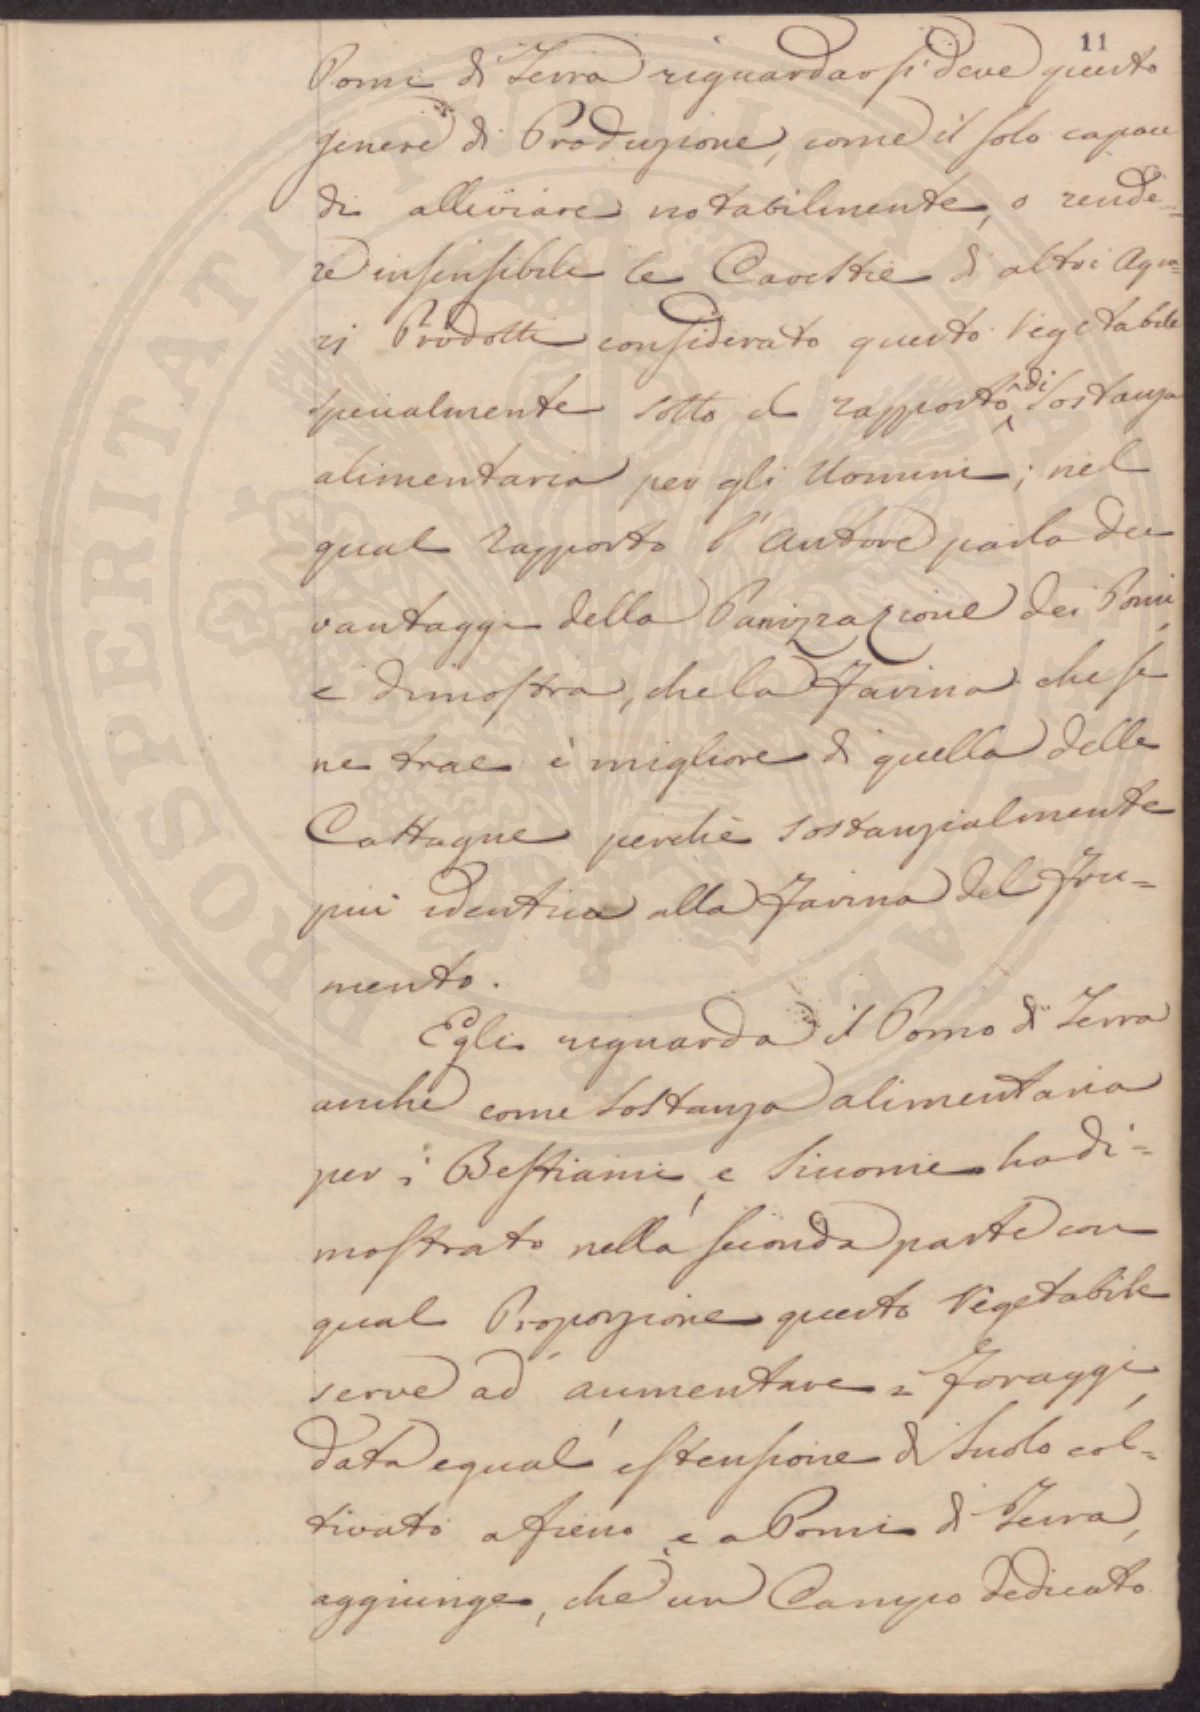 11
Pomi di Terra riguardar si deve questo
genere di Produzione, come il solo capace
di alleviare notabilmente, o rende=
re insensibile le Carestie di altri Agra=
rj Prodotti considerato questo Vegetabile
specialmente sotto il rapporto di Sostanza
alimentaria per gli Uomini; nel
qual rapporto l'Autore parla dei
vantaggi della Panizzazione dei Pomi,
e dimostra, che la Farina che si
ne trae è migliore di quella delle
Castagne perchè sostanzialmente
più identica alla Farina del Fru=
mento.
Egli riguarda il Pomo di Terra
anche come Sostanza alimentaria
per i Bestiami, e siccome ha di=
mostrato nella seconda parte con
qual Proporzione questo Vegetabile
serve ad aumentare i Foraggi,
data egual estensione di Suolo col=
tivato a fieno, e a Pomi di Terra,
aggiunge, che un Campo dedicato
PROSPERITATI PUBLICAE